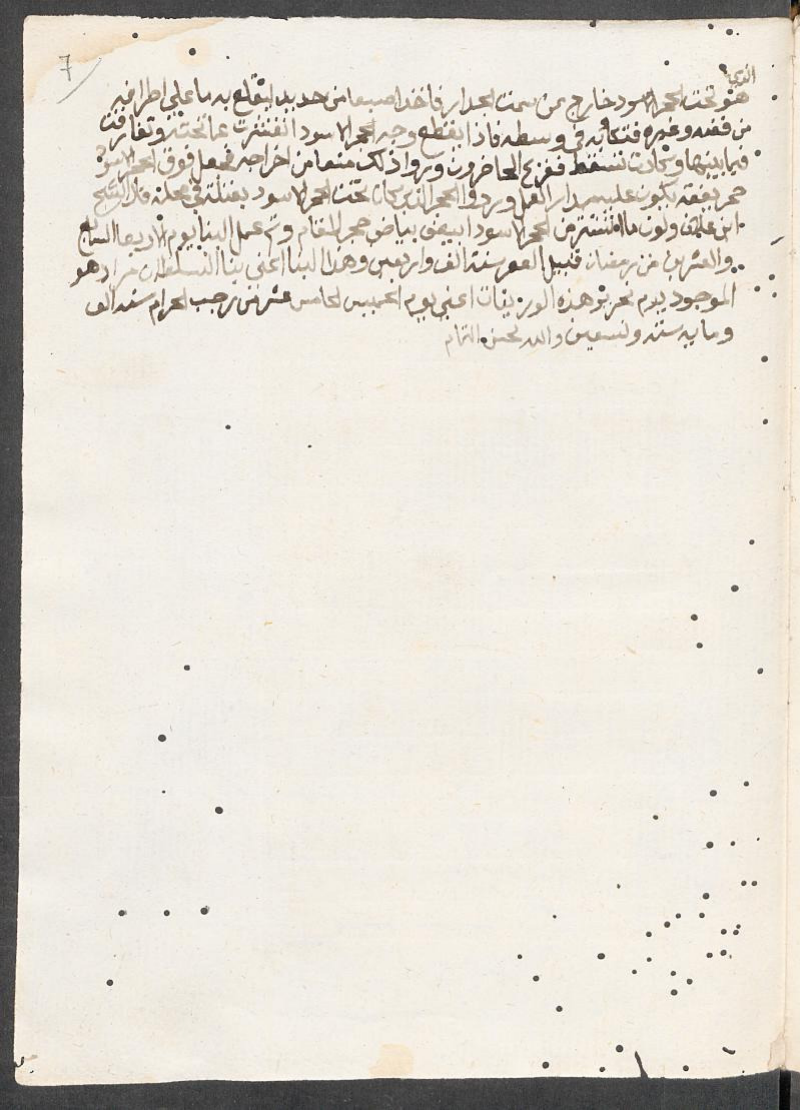 7
الذي
هو تحت الحجر الاسود خارج عن سمت الجدار فاخذ اصبعا من حديد ليقلع به ما على اطرافه
من فضه وغيره فتكا به في وسطه فاذا بقطع وجه الحجر الاسود انتثرت عما تحتها وتفارقت
فيما بينها وكادت تسقط ففزع الحاضرون وردوا ذلك منعا من اخراجه فجعل فوق الحجر الاسود
حجر بفقه يكون عليه مدار العمل وردوا الحجر الذي كان تحت الحجر الاسود بفنلته في محله قال الشيخ
ابن علان ولون ما انتثر من الحجر الاسود ابيض بياض حجر المقام وتم عمل البنا يوم الاربعا السابع
والعشرين من رمضان قبيل العصر سنة الف واربعين وهذا البنا اعني بنا السلطان مراد هو
الموجود يوم تحرير هذه الوريقات اعني يوم الخميس الخامس عشر من رجب الحرام سنه الف
ومايه سته وتسعين والله بحسن التمام